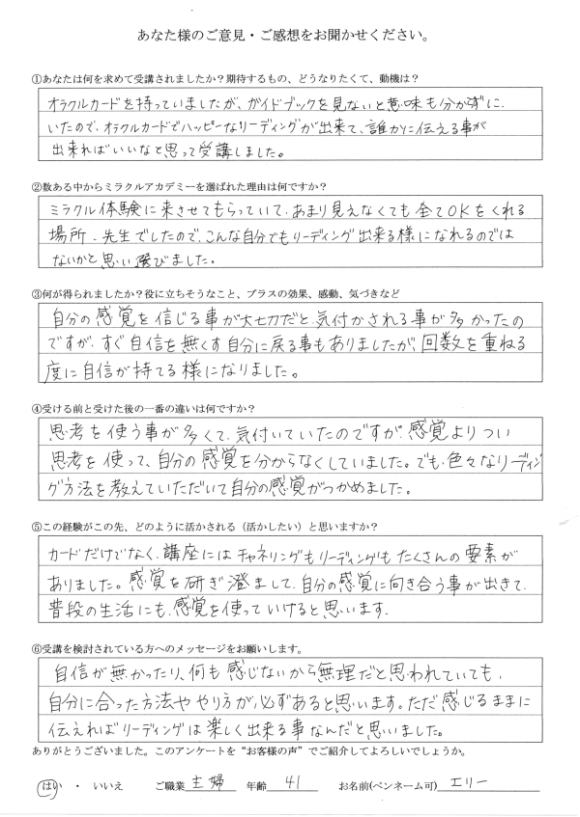 あなた様のご意見・ご感想をお聞かせください。
①あなたは何を求めて受講されましたか？期待するもの、どうなりたくて、動機は？
オラクルカードを持っていましたが、ガイドブックを見ないと意味も分からずに
いたので、オラクルカードでハッピーなリーディングが出来て、誰かに伝える事が
出来ればいいなと思って受講しました。
②数ある中からミラクルアカデミーを選ばれた理由は何ですか？
ミラクル体験に来させてもらっていて、あまり見えなくても全てOKをくれる
場所、先生でしたので、こんな自分でもリーディング出来る様になれるのでは
ないかと思い選びました。
③何が得られましたか？役に立ちそうなこと、プラスの効果、感動、気づきなど
自分の感覚を信じる事が大切だと気付かされる事が多かったの
ですが、すぐ自信を無くす自分に戻る事もありましたが、回数を重ねる
度に自信が持てる様になりました。
④受ける前と受けた後の一番の違いは何ですか？
思考を使う事が多くて、気付いていたのですが、感覚よりつい
思考を使って、自分の感覚を分からなくしていました。でも、色々なリーディン
グ方法を教えていただいて自分の感覚がつかめました。
⑤この経験がこの先、どのように活かされる（活かしたい）と思いますか？
カードだけでなく、講座にはチャネリングもリーディングもたくさんの要素が
ありました。感覚を研ぎ澄まして、自分の感覚に向き合う事が出きて、
普段の生活にも、感覚を使っていけると思います。
⑥受講を検討されている方へのメッセージをお願いします。
自信が無かったり、何も感じないから無理だと思われていても、
自分に合った方法ややり方が、必ずあると思います。ただ感じるままに
伝えればリーディングは楽しく出来る事なんだと思いました。
ありがとうございました。このアンケートを“お客様の声”でご紹介してよろしいでしょうか。
はい ・ いいえ ご職業 主婦 年齢 41 お名前(ペンネーム可) エリー